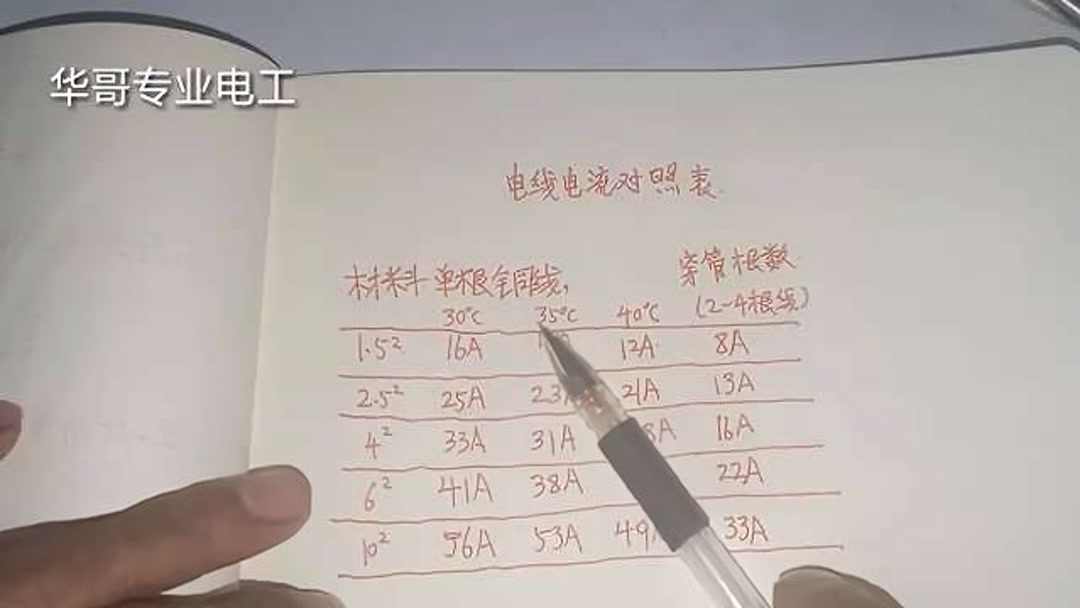 华哥专业电工
电线电流对照表
材料 单根铜线, 穿管根数
30℃ 35℃ 40℃ (2-4根线)
1.5² 16A 12A 8A
2.5² 25A 23 21A 13A
4² 33A 31A 8A 16A
6² 41A 38A 22A
10² 56A 53A 49 33A